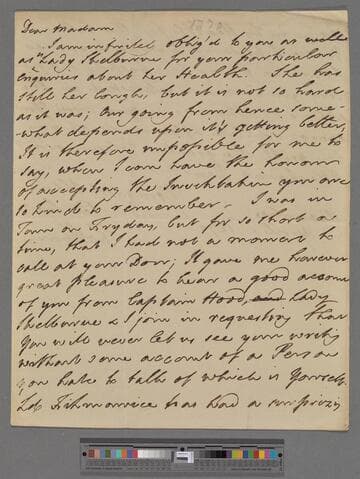 Dear Madam
I am infinitel oblig'd to you as well
as Lady Shelburne for your particular
enquiries about her Health. She has
still her Cough, but it is not so hard
as it was; Our going from hence some-
-what depends upon it's getting better,
It is therefore impossible for me to
say, when I can have the honour
of accepting the Invitation you are
so kind to remember. I was in
Town on Fryday, but for so short a
time, that I had not a moment to
call at your Door; It gave me however
great pleasure to hear a good account
of you from Captain Hood, and Lady
Shelburne & I join in requesting that
you will never let us see your writing
without some account of a Person
you hate to talk of which is Yourself.
Ld. Fitzmaurice has had a surprizing